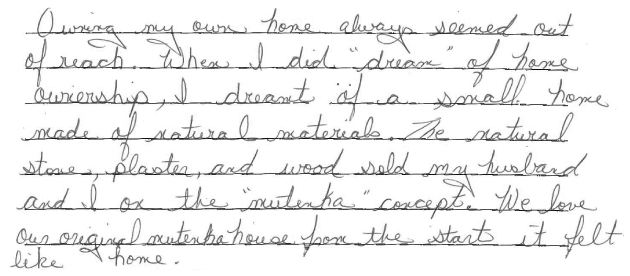 Owning my own home always seemed out
of reach. When I did "dream" of home
ownership, I dreamt of a small home
made of natural materials. The natural
stone, plaster, and wood sold my husband
and I on the "mutenka" concept. We love
our original mutenka house from the start it felt
like home.